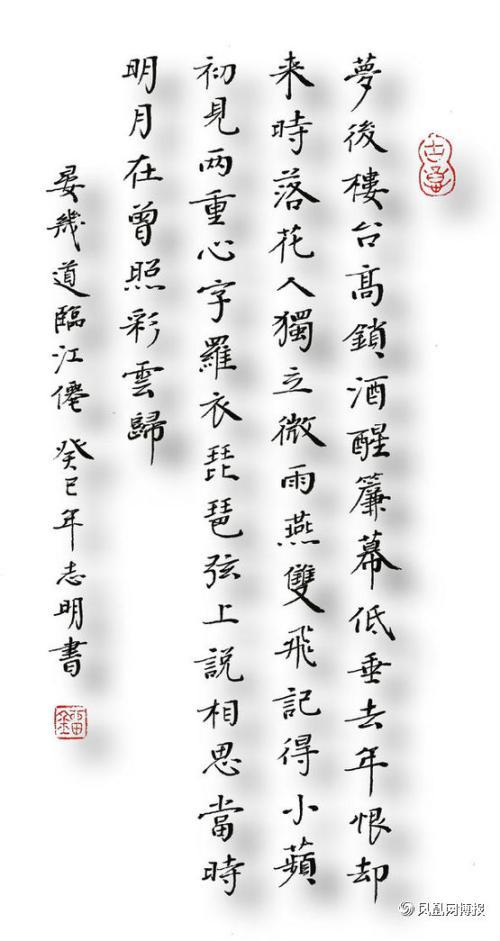 夢後樓台高鎖酒醒簾幕低垂去年恨却
来時落花人獨立微雨燕雙飛記得小蘋
初見两重心字羅衣琵琶弦上説相思當時
明月在曾照彩雲歸
晏幾道臨江僊 癸巳年志明書
凤凰网博报